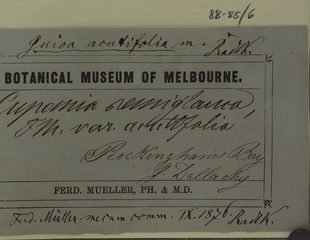 88-85/6
Guioa acutifolia m. Radlk.
BOTANICAL MUSEUM OF MELBOURNE.
Cupania semiglauca,
FM. var. acutifolia
Rockinghams Bay
J Dallachy
FERD. MUELLER, PH. & M.D.
Ferd. Müller mecum comm. IX. 1876. Radlk.